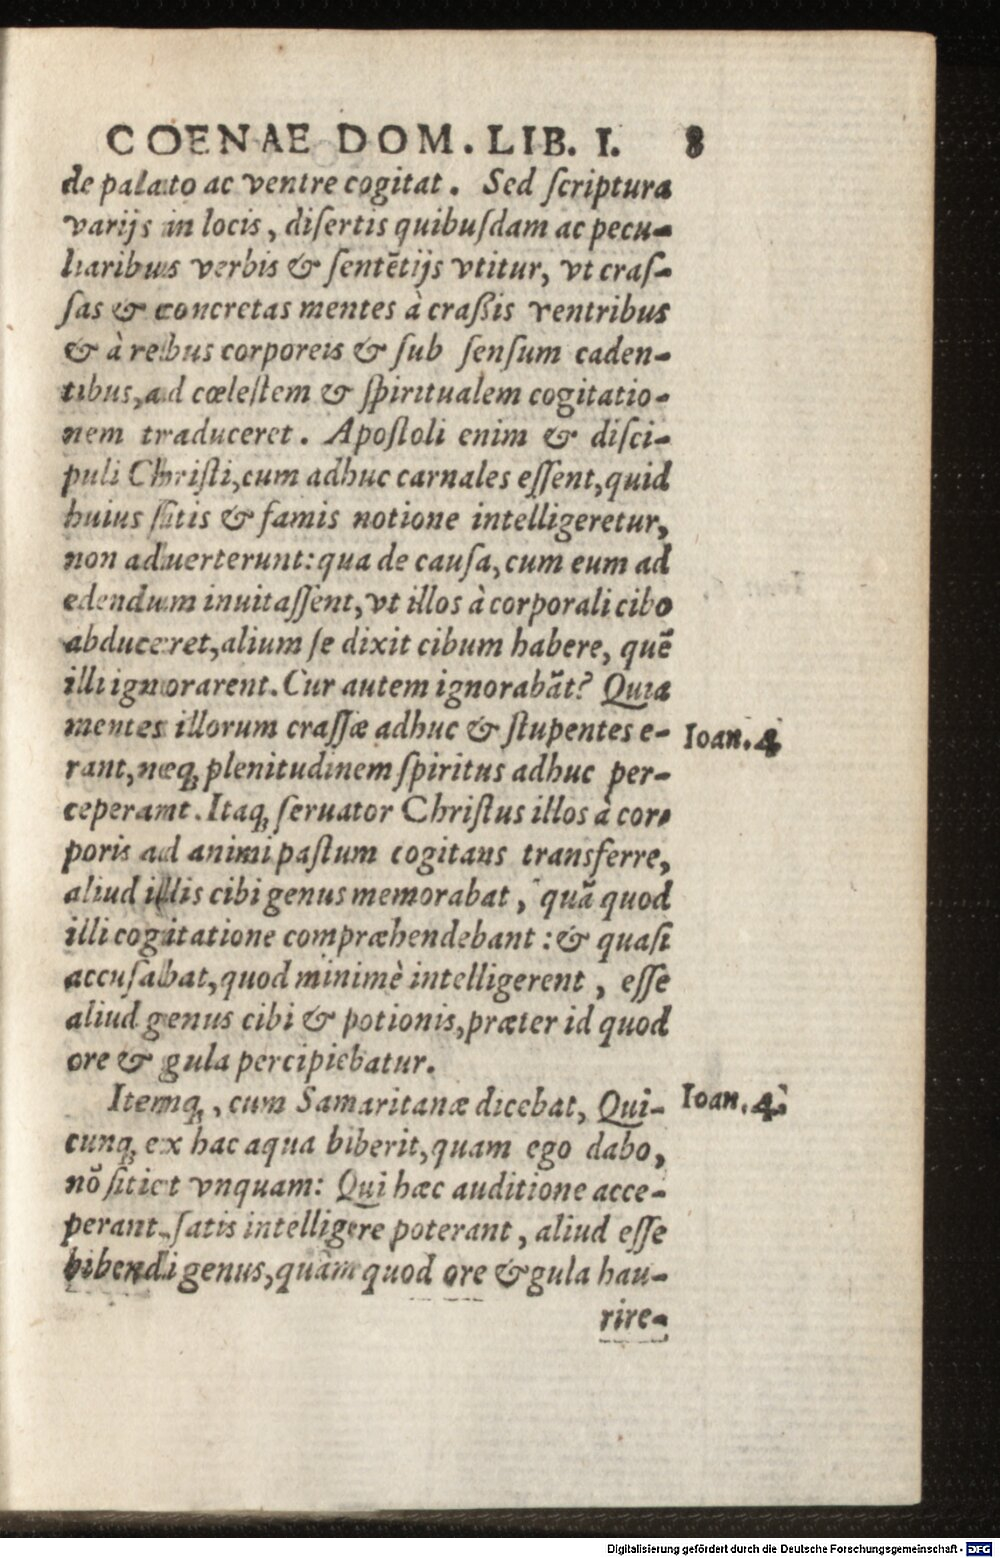 COENAE DOM. LIB. I. 8
de palato ac ventre cogitat. Sed ſcriptura
varijs in locis, diſertis quibuſdam ac pecu-
liaribus verbis & ſentẽtijs vtitur, vt craſ-
ſas & concretas mentes à craßis ventribus
& à rebus corporeis & ſub ſenſum caden-
tibus, ad cœleſtem & ſpiritualem cogitatio-
nem traduceret. Apoſtoli enim & diſci-
puli Chriſti, cum adhuc carnales eſſent, quid
huius ſitis & famis notione intelligeretur,
non aduerterunt: qua de cauſa, cum eum ad
edendum inuitaſſent, vt illos à corporali cibo
abduceret, alium ſe dixit cibum habere, quẽ
illi ignorarent. Cur autem ignorabãt? Quia
mentes illorum craſſæ adhuc & ſtupentes e-
Ioan. 4
rant, neq; plenitudinem ſpiritus adhuc per-
ceperant. Itaq; ſeruator Chriſtus illos à cor-
poris ad animi paſtum cogitans transferre,
aliud illis cibi genus memorabat, quã quod
illi cogitatione compræhendebant: & quaſi
accuſabat, quod minimè intelligerent, eſſe
aliud genus cibi & potionis, præter id quod
ore & gula percipiebatur.
Itemq;, cum Samaritanæ dicebat, Qui-
Ioan. 4.
cunq; ex hac aqua biberit, quam ego dabo,
nõ ſitiet vnquam: Qui hæc auditione acce-
perant, ſatis intelligere poterant, aliud eſſe
bibendi genus, quàm quod ore & gula hau-
rire-
Digitalisierung gefördert durch die Deutsche Forschungsgemeinschaft - DFG